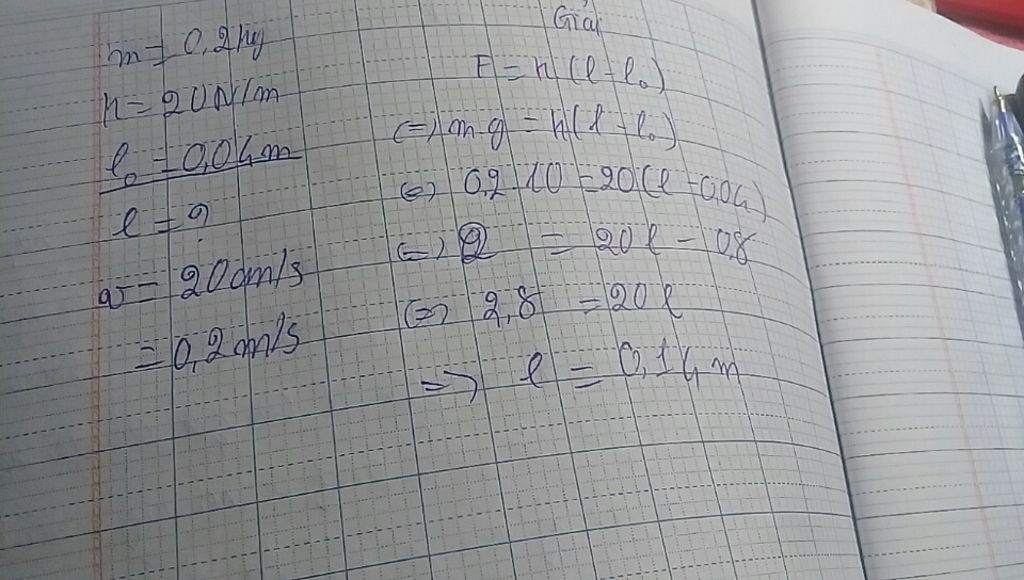 m = 0,2 kg
k = 20 N/m
l₀ = 0,04 m
l = ?
v = 20 cm/s
= 0,2 m/s
Giải
F = k (l - l₀)
(=) m.g = k(l - l₀)
(=) 0,2 10 = 20(l - 0,04)
(=) 2 = 20 l - 0,8
(=) 2,8 = 20 l
=> l = 0,14 m